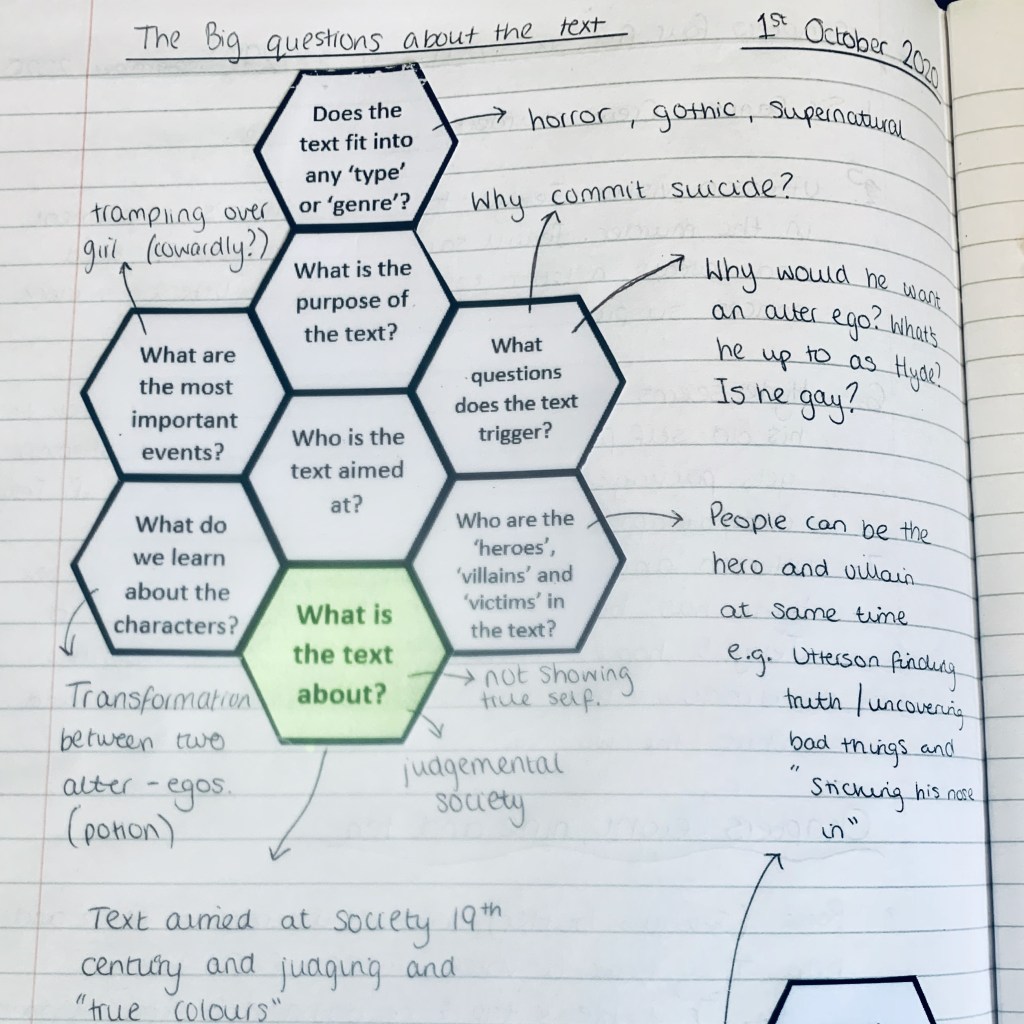 The Big questions about the text
1st October 2020
Does the
text fit into
any 'type'
or 'genre'?
horror, gothic, supernatural
Why commit suicide?
trampling over
girl (cowardly?)
What is the
purpose of
the text?
Why would he want
an alter ego? What's
he up to as Hyde?
Is he gay?
What are
the most
important
events?
What
questions
does the text
trigger?
Who is the
text aimed
at?
What do
we learn
about the
characters?
Who are the
'heroes',
'villains' and
'victims' in
the text?
People can be the
hero and villain
at same time
e.g. Utterson finding
truth / uncovering
bad things and
"Sticking his nose
in"
What is
the text
about?
not showing
true self.
judgemental
society
Transformation
between two
alter-egos.
(potion)
Text aimed at society 19th
century and judging and
"true colours"